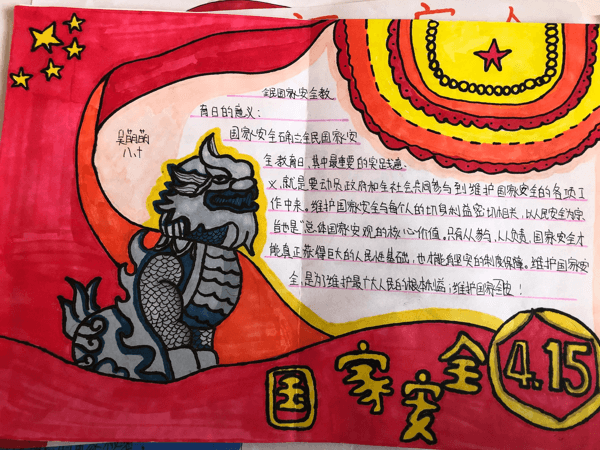 全民国家安全教
育日的意义:
国家安全 全民国家安
全教育日,其中最重要的实
义,就是要动员政府和全社会共同参与到维护国家安全的各项工
作中来。维护国家安全与每个人的切身利益密切相关,以人民安全为宗
旨也是"总体国家安观的核心价值。只有人参与,人人负责,国家安全才
能真正获得巨大的人民性基础,也才能有坚实的制度保障。维护国家安
全,是为了维护最广大人民的根本利益;维护国家
八、十
国家安全
4.15